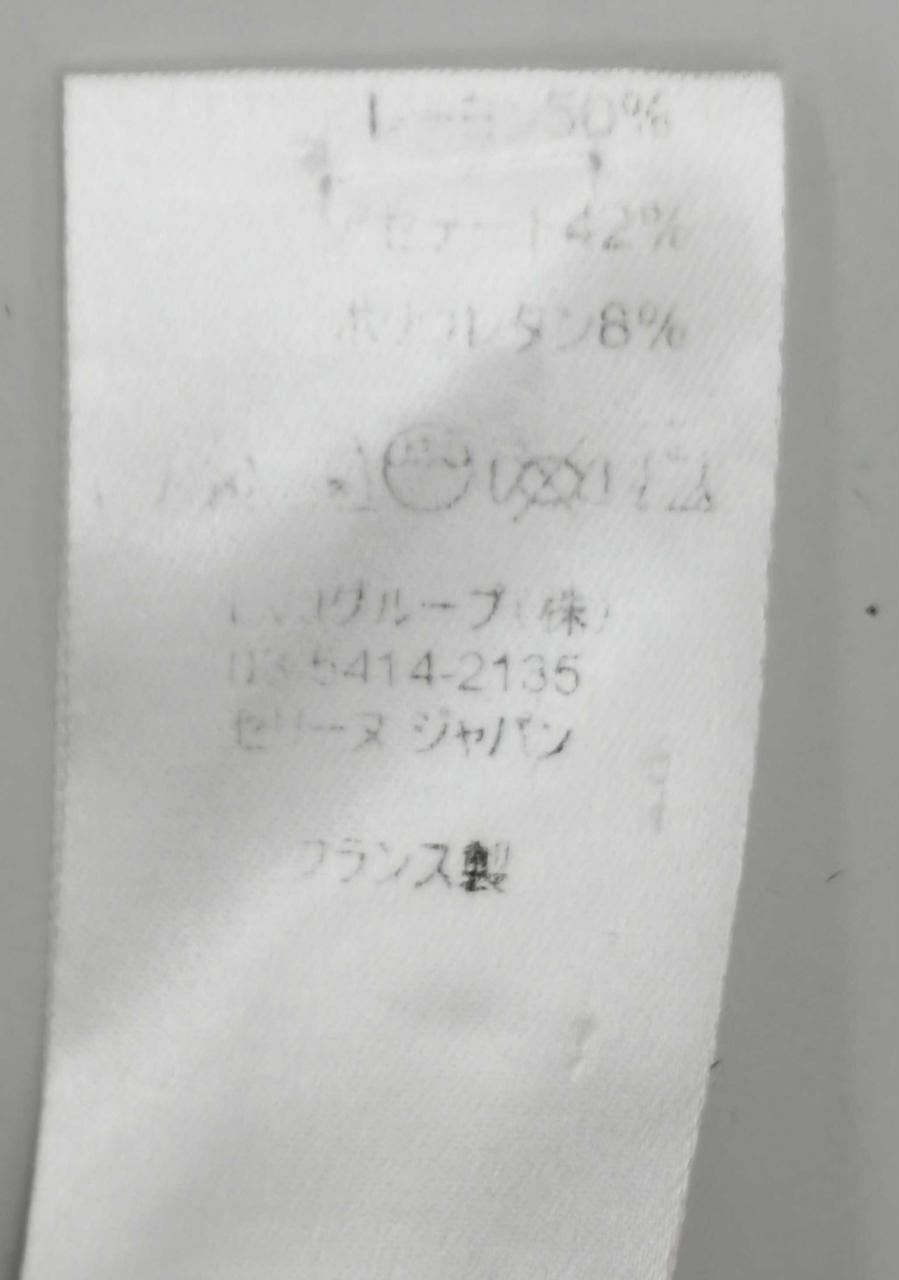 レーヨン50%
アセテート42%
ポリウレタン8%
グループ(株)
03-5414-2135
セリーヌ ジャパン
フランス製